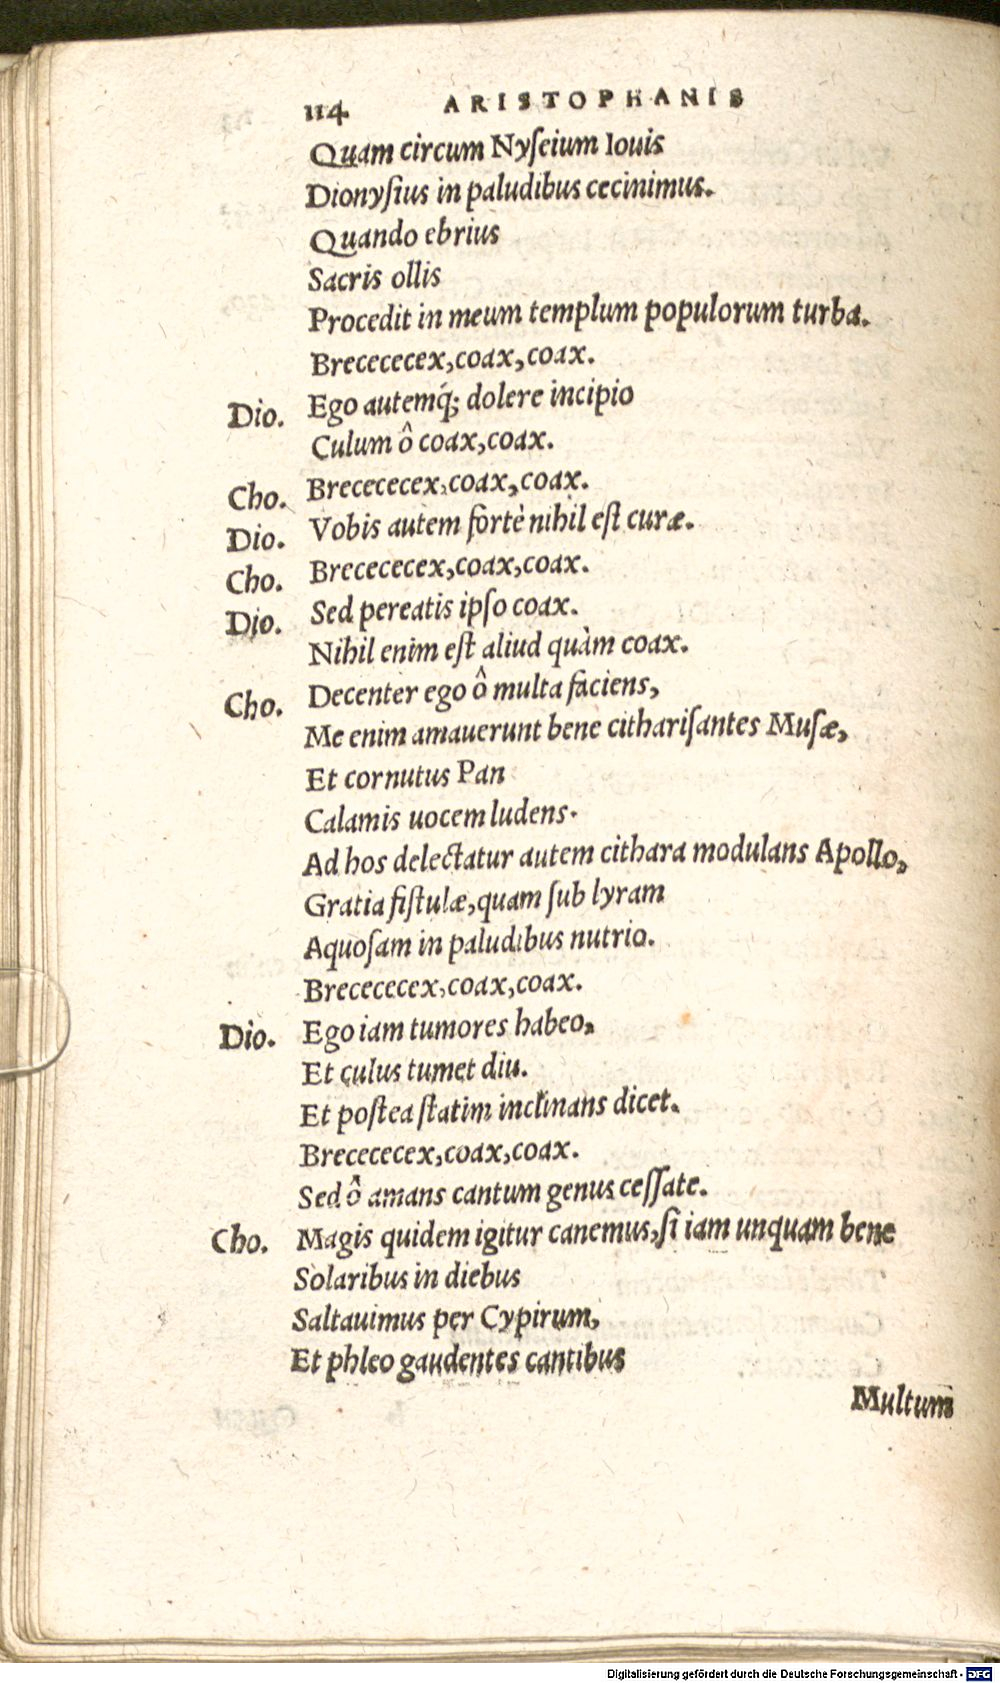 114 ARISTOPHANIS
Quam circum Nyſeium Iouis
Dionyſius in paludibus cecinimus.
Quando ebrius
Sacris ollis
Procedit in meum templum populorum turba.
Brecececex, coax, coax.
Dio. Ego autemq́; dolere incipio
Culum ô coax, coax.
Cho. Brecececex, coax, coax.
Dio. Vobis autem fortè nihil eſt curæ.
Cho. Brecececex, coax, coax.
Dio. Sed pereatis ipſo coax.
Nihil enim eſt aliud quàm coax.
Cho. Decenter ego ô multa faciens,
Me enim amauerunt bene cithariſantes Muſæ,
Et cornutus Pan
Calamis uocem ludens.
Ad hos delectatur autem cithara modulans Apollo,
Gratia fiſtulæ, quam ſub lyram
Aquoſam in paludibus nutrio.
Brecececex, coax, coax.
Dio. Ego iam tumores habeo,
Et culus tumet diu.
Et poſtea ſtatim inclinans dicet.
Brecececex, coax, coax.
Sed ô amans cantum genus ceſſate.
Cho. Magis quidem igitur canemus, ſi iam unquam bene
Solaribus in diebus
Saltauimus per Cypirum,
Et phleo gaudentes cantibus
Multum
Digitalisierung gefördert durch die Deutsche Forschungsgemeinschaft - DFG